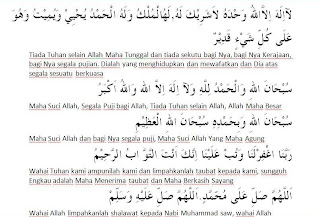 لآاِلٰهَ اِلاَّ اللهُ وَحْدَهُ لاَشَرِيْكَ لَهُ، لَهُالْمُلْكُ وَلَهُ الْحَمْدُ يُحْيِيْ وَيُمِيْتُ وَهُوَ
عَلَى كُلِّ شَيْءٍ قَدِيْرٌ
Tiada Tuhan selain Allah Maha Tunggal dan tiada sekutu bagi Nya, bagi Nya Kerajaan,
bagi Nya segala pujian. Dialah yang menghidupkan dan mewafatkan dan Dia atas
segala sesuatu berkuasa
سُبْحَانَ اللهِ وَالْحَمْدُ لِلّٰهِ وَلآ اِلٰهَ اِلاَّ اللهُ وَاللهُ اَكْبَرُ
Maha Suci Allah, Segala Puji bagi Allah, Tiada Tuhan selain Allah, Allah Maha Besar
سُبْحَانَ اللهِ وَبِحَمْدِهِ سُبْحَانَ اللهِ الْعَظِيْمِ
Maha Suci Allah dan bagi Nya segala puji, Maha Suci Allah Yang Maha Agung
رَبَّنَا اغْفِرْلَنَا وَتُبْ عَلَيْنَا اِنَّكَ اَنْتَ التَّوَّابُ الرَّحِيْمُ
Wahai Tuhan kami ampunilah kami dan limpahkanlah taubat kepada kami, sungguh
Engkau adalah Maha Menerima taubat dan Maha Berkasih Sayang
اَللّٰهُمَّ صَلِّ عَلَى مُحَمَّدٍ، اَللّٰهُمَّ صَلِّ عَلَيْهِ وَسَلِّمْ
Wahai Allah limpahkanlah shalawat kepada Nabi Muhammad saw, wahai Allah